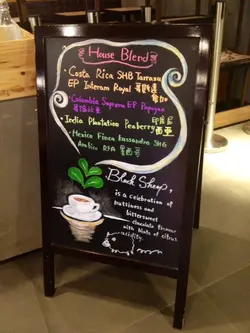 House Blend
· Costa Rica SHB Tarrazu
EP Interam Royal 哥斯達黎加
· Colombia Supremo EP Popayan
哥倫比亞
· India Plantation Peaberry 印度
· Mexico Finca Kassandra SHG
Arabica 墨西哥
Black Sheep,
is a celebration of
nuttiness and
bittersweet
chocolate flavour
with hints of citrus
acidity.